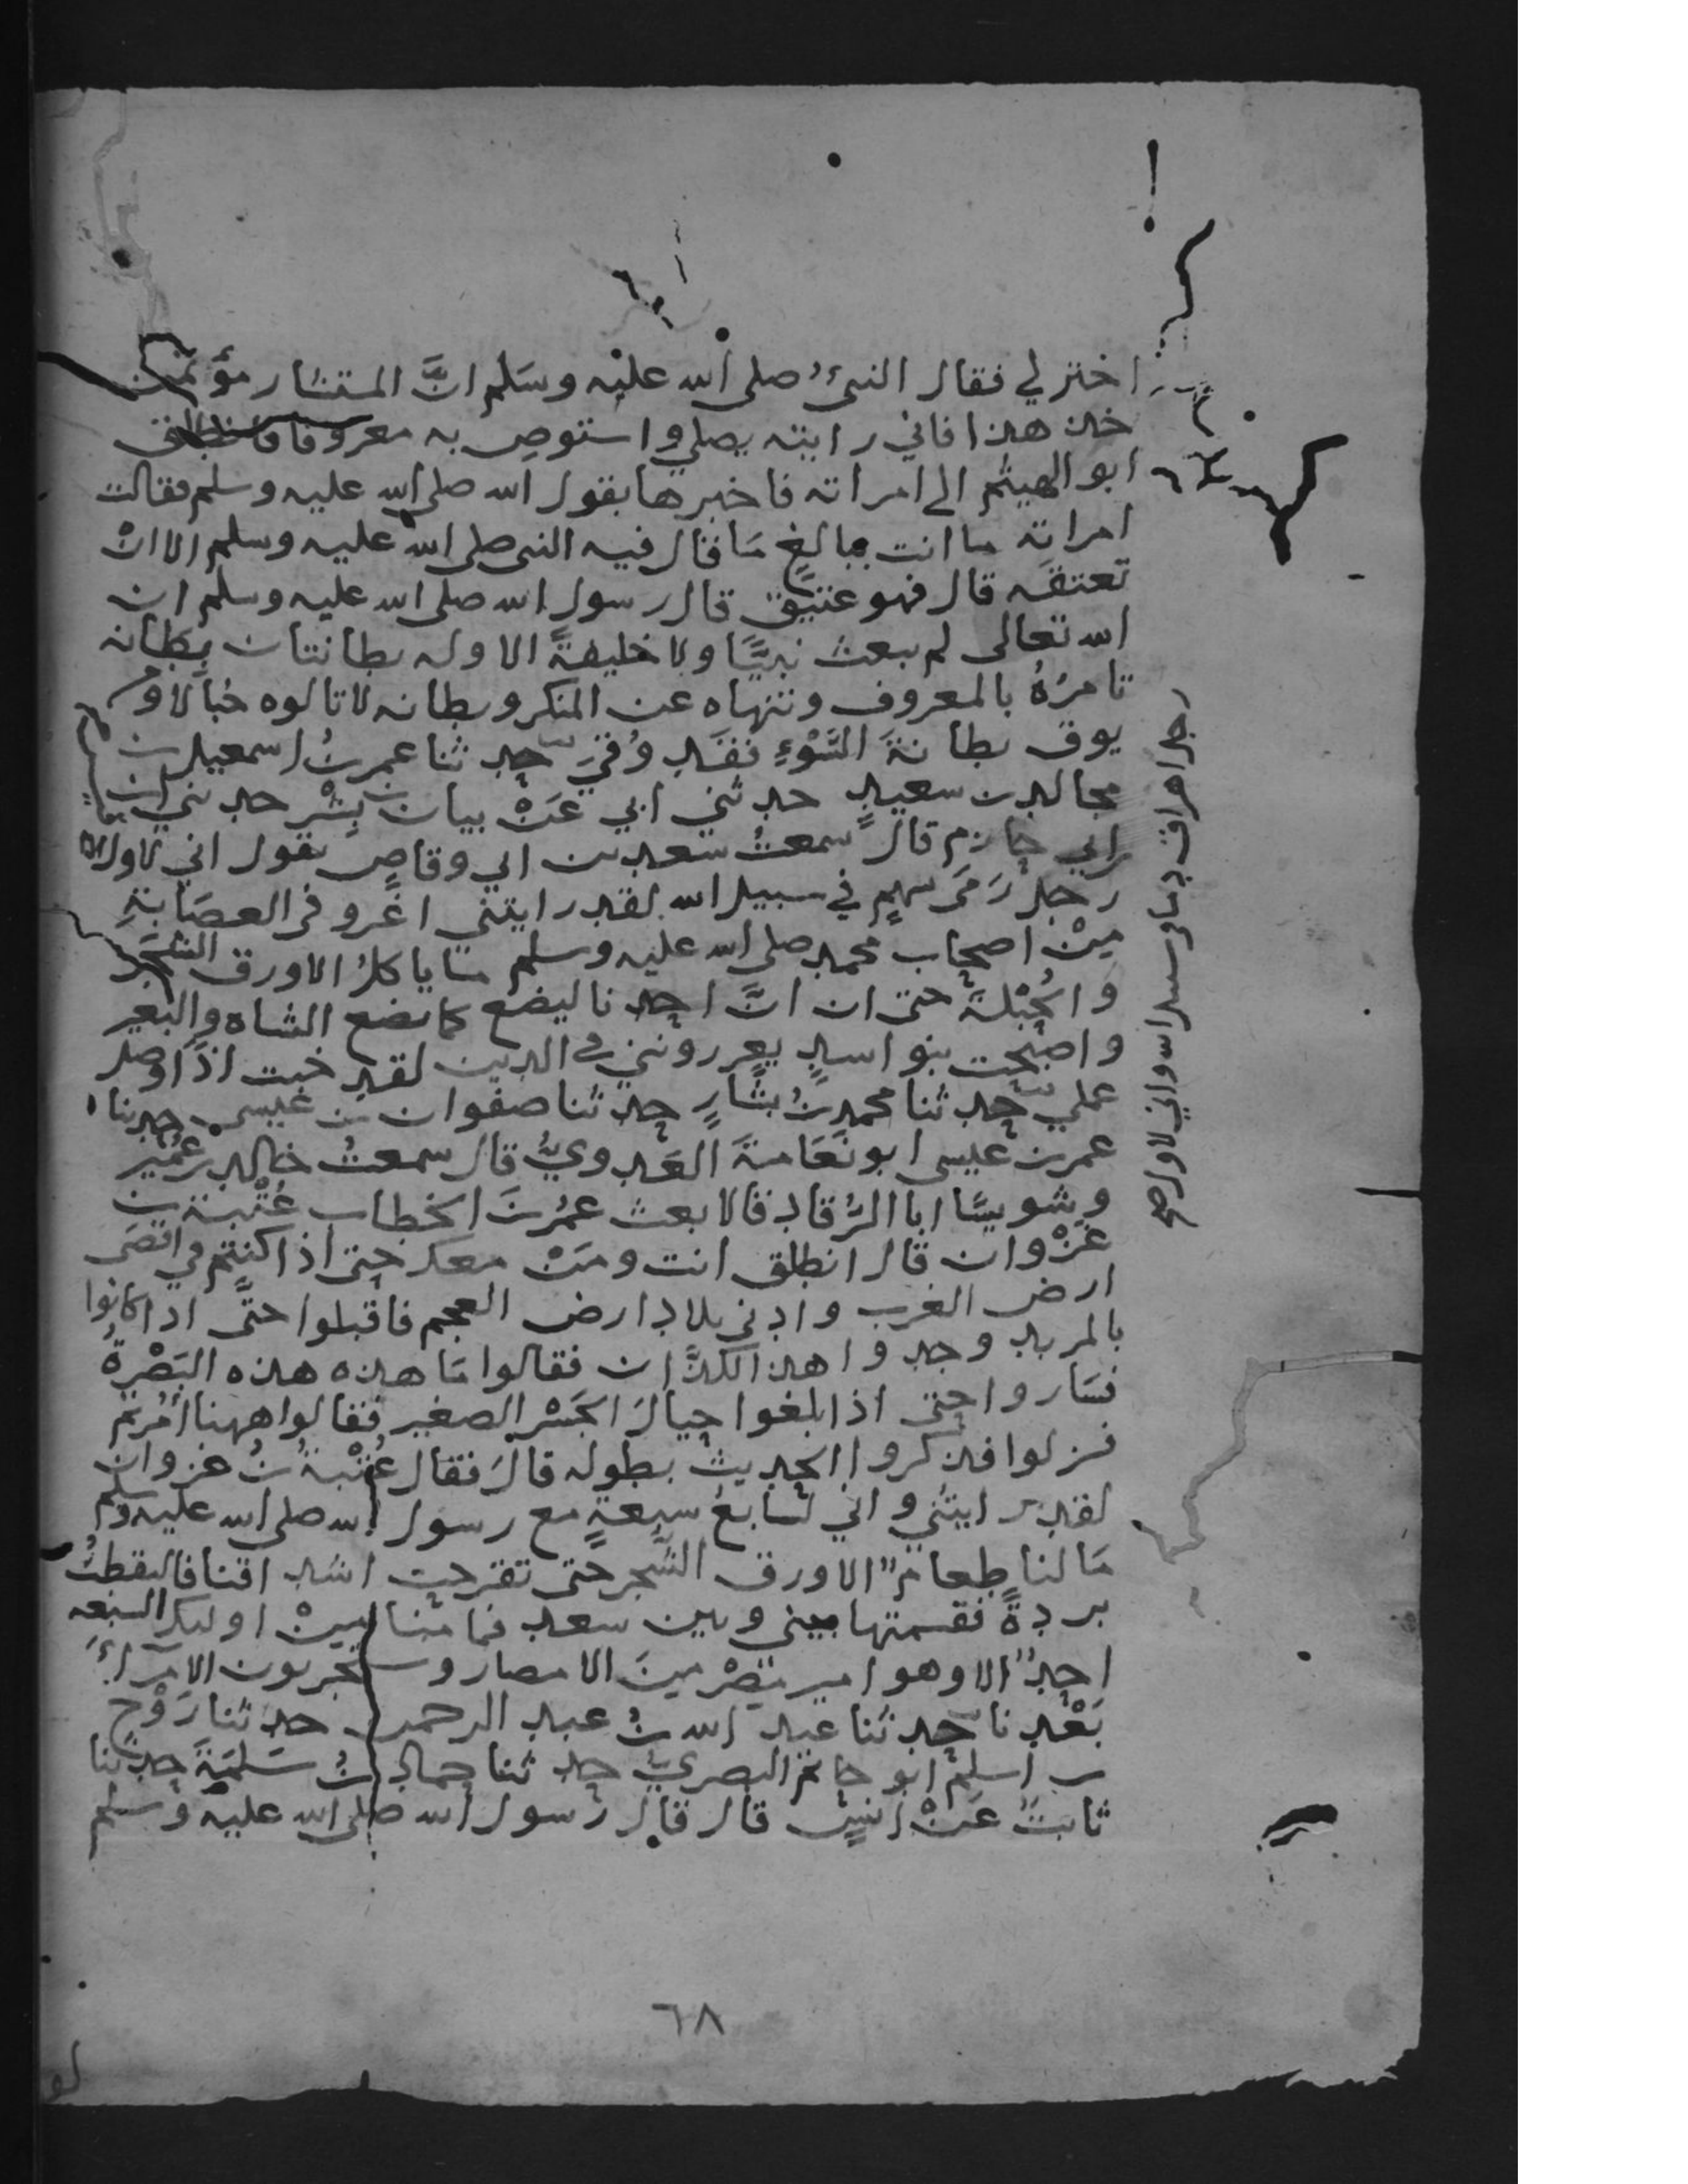 اختر لي فقال النبيُّ صلى الله عليه وسَلم انَّ المستشار مؤتمن
خذ هذا فاني رايته يصلي واستوصِ به معروفا فانطلق
ابو الهيثم الى امراته فاخبرها بقول الله صلى الله عليه وسلم فقالت
امراته ما انت ببالغٍ مَا قال فيه النبي صلى الله عليه وسلم الا انْ
تعتقَه قال فهو عتيقٌ قال رسول الله صلى الله عليه وسلم ان
الله تعالى لم يبعث نبيًّا ولا خليفةً الا وله بطانتان بِطانه
تامرُهُ بالمعروف وتنهاه عن المنكر وبطانه لا تالوه خبالا ومن
يوق بطانةَ السُّوْءِ فقَد وُقيَ حدثنا عمر بنُ اسمعيل بن
مجالد بن سعيدٍ حدثني ابي عَنْ بيان بن بِشْرٍ حدثني
ابي حازم قال سمعتُ سعد بن ابي وقاصٍ يقول اني لاول
رجل رَمَى بسهمٍ في سبيل الله لقد رايتني اغزو في العصَابةِ
مِنْ اصحاب محمد صلى الله عليه وسلم ما ياكلُ الا ورق الشَجَر
والحُبْلَةَ حتى ان انَّ احدنا ليضع كما تضع الشاه والبعير
واصبحت بنو اسدٍ يعزرونني في الدين لقد خبت اذًا وضل
عملي حدثنا محمد بنُ بشارٍ حدثنا صفوان بن عيسى حدثنا
عمر بن عيسى ابو نَعَامةَ العَدويُّ قال سمعتُ خالد بن عُمَيرٍ
وشويسًا ابا الرُّقاد قالا بعث عمُر بنُ الخطاب عُتْبة بن
غَزْوان قال انطلق انت ومَنْ معك حتى اذا كنتم في اقصَى
ارض العرب وادنى بلاد ارض العجم فاقبلوا حتَّى اذا كانوا
بالمربد وجدوا هذا الكذَّان فقالوا مَا هذه هذه البَصْرةُ
فسَاروا حتى اذا بلغوا حيالَ الجَسْر الصغير فقالوا ههنا اُمرتم
فنزلوا فذكروا الحديث بطوله قالَ فقال عُتْبةُ بنُ غزوان
لقد رايتُني واني لسَابعُ سبعةٍ مع رسول الله صلى الله عليه وسلم
مَا لنا طعامٌ الا ورق الشجر حتى تقرحت اشداقنا فالتقطتُ
بردةً فقسمتها بيني وبين سعد فما منا مِنْ اوليك السبعه
احدٌ الا وهو امير مِصْرٍ مِنَ الامصار وستجربون الامرآءَ
بَعْدنا حدثنا عبد الله بنُ عبد الرحمن حدثنا رَوْح
بن اسلم ابو حاتم البصريُّ حدثنا حماد بنُ سَلمَةَ حدثنا
ثابتٌ عَنْ انسٍ قال قال رسول الله صلى الله عليه وسلم
رجل اهراق دما في سبيل الله واني لاول
٦٨